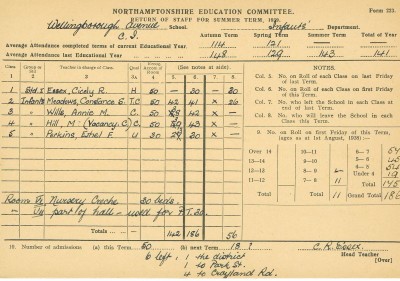 NORTHAMPTONSHIRE EDUCATION COMMITTEE.
Form 221.
RETURN OF STAFF FOR SUMMER TERM,
Wellingborough Avenue School. Infants' Department.
C.I.
Autumn Term Spring Term Summer Term Year
Average Attendance completed terms of current Educational Year 114 121
Average Attendance previous Educational Year 148 129 143 141
(See notes at side).
Class. Teacher in charge of Class.
1. 2. 3. 3a. 4. 5. 6. 7. 8.
1 Std I Essex, Cicely R. H 50 - 30 - 30
2 Infants Meadows, Constance E. T.C 50 42 41 x 26
3 " Wills, Annie M. C. 50
4 " Hill, M. (Vacancy C) C. 50 43 x -
5 " Perkins, Ethel F. U 30 20 x -
Room VI Nursery Creche 30 beds.
" part of hall - used for P.T. 30.
Totals 142 186 56
NOTES.
Col. 5. No. on Roll of each Class on last Friday of last Term.
Col. 6. No. on Roll of each Class on first Friday of this Term.
Col. 7. No. who left the School in each Class at end of last Term.
Col. 8. No. who will leave the School in each Class this Term.
9. No. on Roll on first Friday of this Term
Over 14 10-11 6-7
13-14 9-10 5-6
12-13 8-9 Under 5
11-12 7-8 11 Total 175
Total Total 11 Grand Total 186
10. Number of admissions (a) this Term 50 (b) next Term 18 ?
6 left, 1 the district
1 to Park St.
4 to Croyland Rd.
C. R. Essex
Head Teacher
[Over]